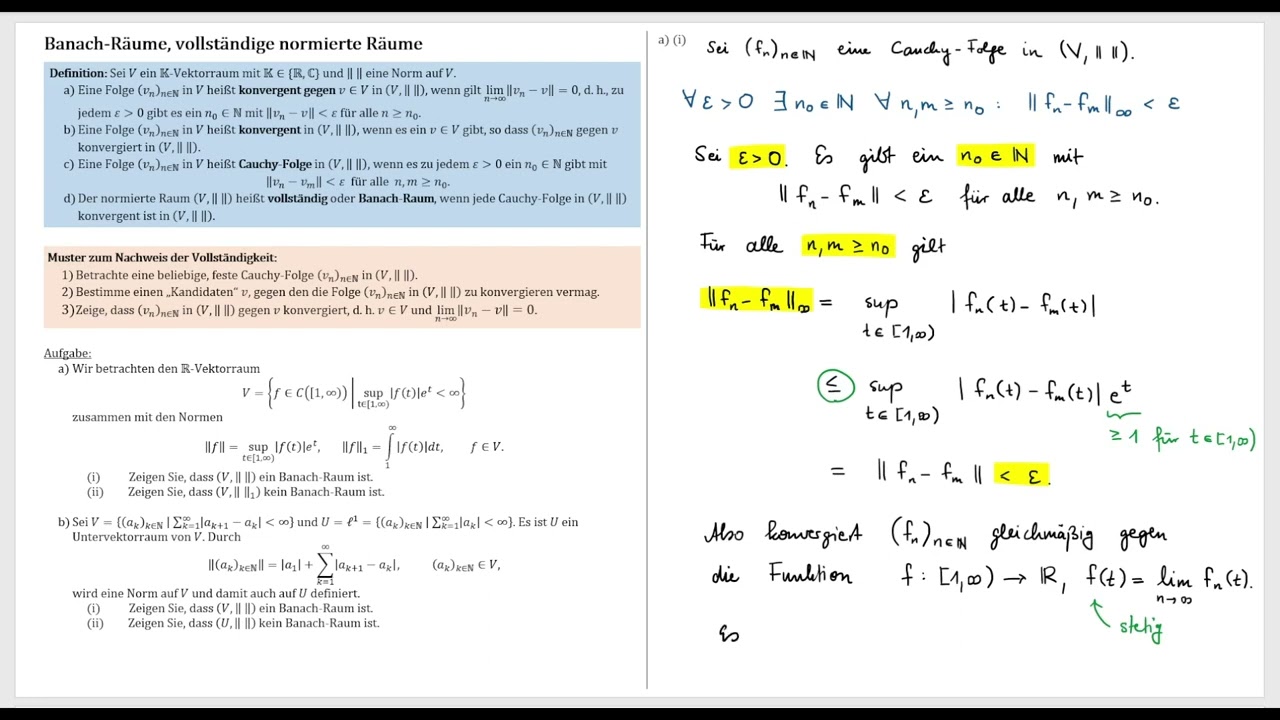 Banach-Räume, vollständige normierte Räume
Definition: Sei V ein 𝕂-Vektorraum mit 𝕂 ∈ {ℝ, ℂ} und ‖ ‖ eine Norm auf V.
a) Eine Folge (vₙ)ₙ∈ℕ in V heißt konvergent gegen v ∈ V in (V, ‖ ‖), wenn gilt lim n→∞ ‖vₙ − v‖ = 0, d. h., zu
jedem ε > 0 gibt es ein n₀ ∈ ℕ mit ‖vₙ − v‖ < ε für alle n ≥ n₀.
b) Eine Folge (vₙ)ₙ∈ℕ in V heißt konvergent in (V, ‖ ‖), wenn es ein v ∈ V gibt, so dass (vₙ)ₙ∈ℕ gegen v
konvergiert in (V, ‖ ‖).
c) Eine Folge (vₙ)ₙ∈ℕ in V heißt Cauchy-Folge in (V, ‖ ‖), wenn es zu jedem ε > 0 ein n₀ ∈ ℕ gibt mit
‖vₙ − vₘ‖ < ε für alle n, m ≥ n₀.
d) Der normierte Raum (V, ‖ ‖) heißt vollständig oder Banach-Raum, wenn jede Cauchy-Folge in (V, ‖ ‖)
konvergent ist in (V, ‖ ‖).
Muster zum Nachweis der Vollständigkeit:
1) Betrachte eine beliebige, feste Cauchy-Folge (vₙ)ₙ∈ℕ in (V, ‖ ‖).
2) Bestimme einen „Kandidaten“ v, gegen den die Folge (vₙ)ₙ∈ℕ in (V, ‖ ‖) zu konvergieren vermag.
3) Zeige, dass (vₙ)ₙ∈ℕ in (V, ‖ ‖) gegen v konvergiert, d. h. v ∈ V und lim n→∞ ‖vₙ − v‖ = 0.
Aufgabe:
a) Wir betrachten den ℝ-Vektorraum
V = {f ∈ C([1, ∞)) | sup t∈[1,∞) |f(t)|eᵗ < ∞}
zusammen mit den Normen
‖f‖ = sup t∈[1,∞) |f(t)|eᵗ, ‖f‖₁ = ∫₁^∞ |f(t)|dt, f ∈ V.
(i) Zeigen Sie, dass (V, ‖ ‖) ein Banach-Raum ist.
(ii) Zeigen Sie, dass (V, ‖ ‖₁) kein Banach-Raum ist.
b) Sei V = {(aₖ)ₖ∈ℕ | ∑ₖ₌₁^∞ |aₖ₊₁ − aₖ| < ∞} und U = ℓ¹ = {(aₖ)ₖ∈ℕ | ∑ₖ₌₁^∞ |aₖ| < ∞}. Es ist U ein
Untervektorraum von V. Durch
‖(aₖ)ₖ∈ℕ‖ = |a₁| + ∑ₖ₌₁^∞ |aₖ₊₁ − aₖ|, (aₖ)ₖ∈ℕ ∈ V,
wird eine Norm auf V und damit auch auf U definiert.
(i) Zeigen Sie, dass (V, ‖ ‖) ein Banach-Raum ist.
(ii) Zeigen Sie, dass (U, ‖ ‖) kein Banach-Raum ist.
a) (i) Sei (fₙ)ₙ∈ℕ eine Cauchy-Folge in (V, ‖ ‖).
∀ ε > 0 ∃ n₀ ∈ ℕ ∀ n, m ≥ n₀ : ‖fₙ − fₘ‖∞ < ε
Sei ε > 0. Es gibt ein n₀ ∈ ℕ mit
‖fₙ − fₘ‖ < ε für alle n, m ≥ n₀.
Für alle n, m ≥ n₀ gilt
‖fₙ − fₘ‖∞ = sup t∈[1,∞) |fₙ(t) − fₘ(t)|
≤ sup t∈[1,∞) |fₙ(t) − fₘ(t)| eᵗ
≥ 1 für t∈[1,∞)
= ‖fₙ − fₘ‖ < ε.
Also konvergiert (fₙ)ₙ∈ℕ gleichmäßig gegen
die Funktion f : [1,∞) → ℝ, f(t) = lim n→∞ fₙ(t).
stetig
Es